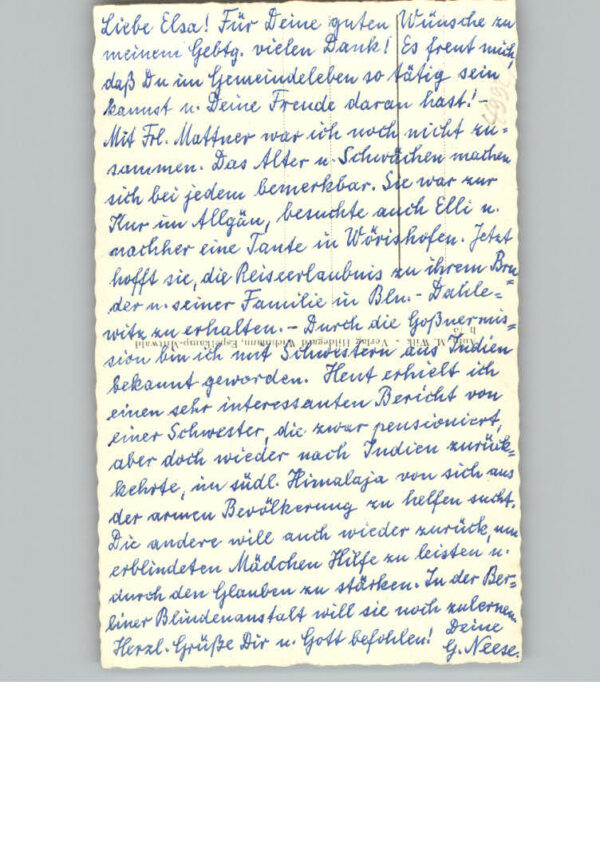 Liebe Elsa! Für Deine guten Wünsche zu
meinem Gebtg. vielen Dank! Es freut mich,
daß Du im Gemeindeleben so tätig sein
kannst u. Deine Freude daran hast! –
Mit Frl. Mattner war ich noch nicht zu=
sammen. Das Alter u. Schwächen machen
sich bei jedem bemerkbar. Sie war zur
Kur im Allgäu, besuchte auch Elli u.
nachher eine Tante in Wörishofen. Jetzt
hofft sie, die Reiseerlaubnis zu ihrem Bru=
der u. seiner Familie in Bln. - Dahle=
witz zu erhalten. – Durch die Goßnermis=
sion bin ich mit Schwestern aus Indien
bekannt geworden. Heut erhielt ich
einen sehr interessanten Bericht von
einer Schwester, die zwar pensioniert,
aber doch wieder nach Indien zurück=
kehrte, im südl. Himalaja von sich aus
der armen Bevölkerung zu helfen sucht.
Die andere will auch wieder zurück, um
erblindeten Mädchen Hilfe zu leisten u.
durch den Glauben zu stärken. In der Ber=
liner Blindenanstalt will sie noch zulernen.
Herzl. Grüße Dir u. Gott befohlen! Deine
G. Neese.
Verlag Hildegard Wehmann, Espelkamp-Mittwald